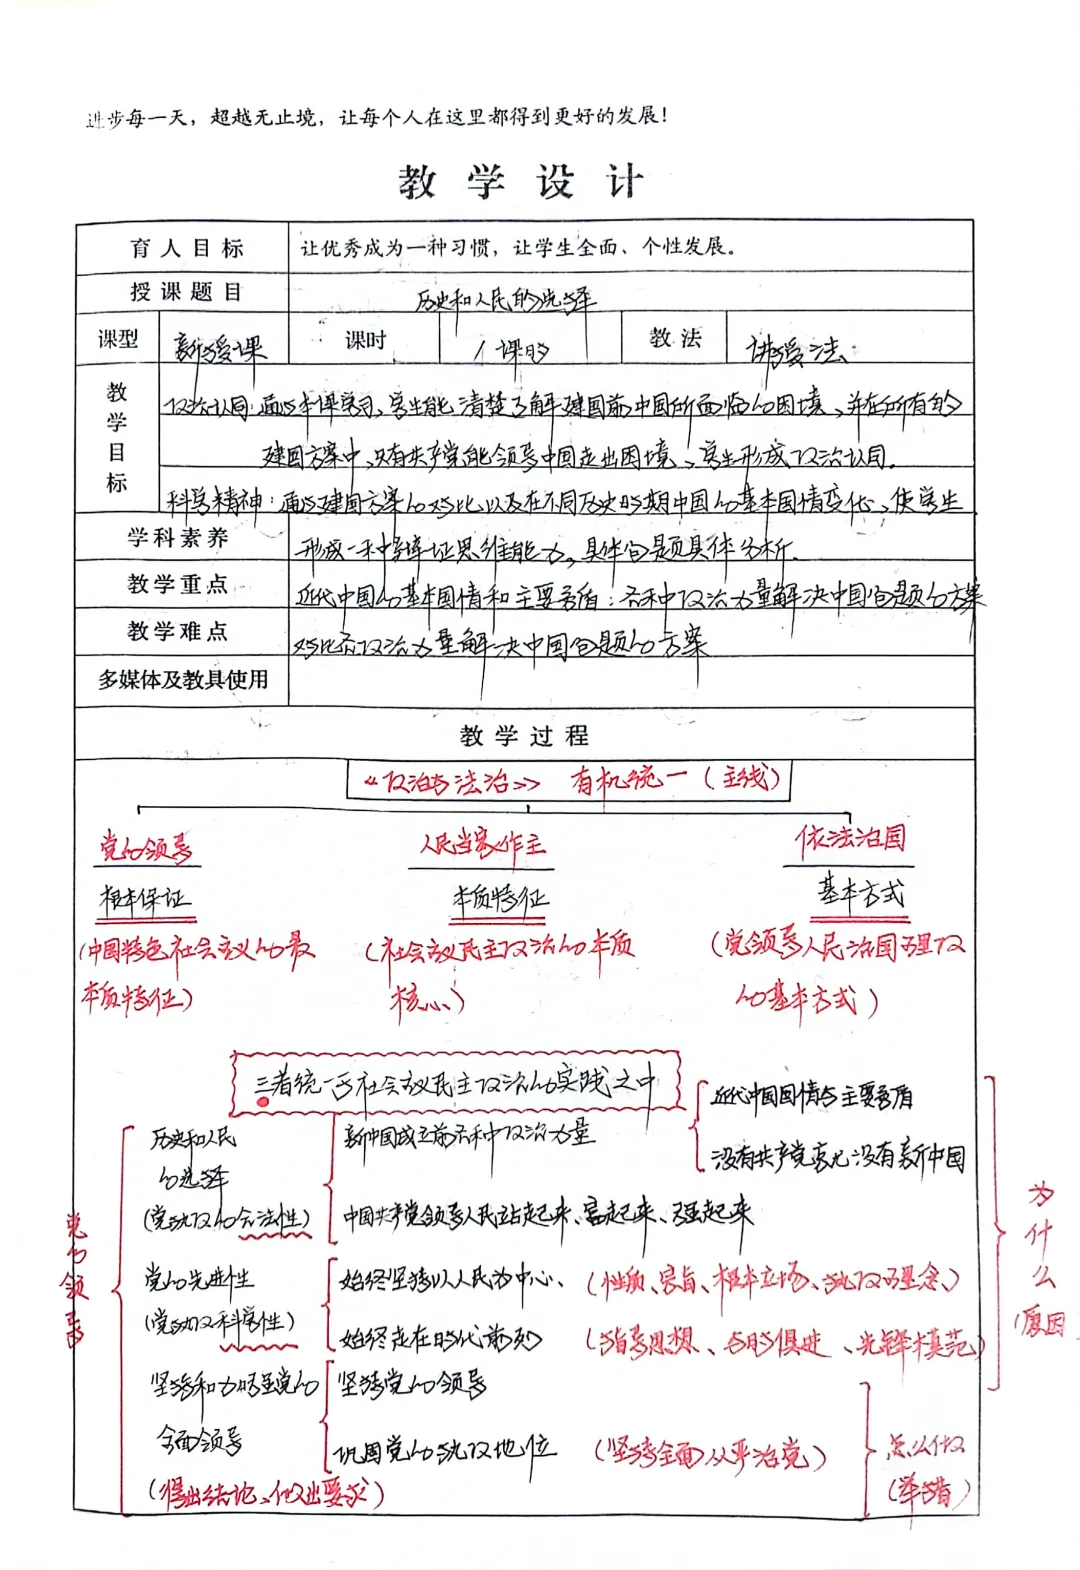 进步每一天，超越无止境，让每个人在这里都得到更好的发展！
教学设计
育人目标 让优秀成为一种习惯，让学生全面、个性发展。
授课题目 历史和人民的选择
课型 新授课 课时 1课时 教法 讲授法
教学目标
政治认同：通过本课学习，学生能清楚了解建国前中国所面临的困境，并在所有的
建国方案中，只有共产党能领导中国走出困境，学生形成政治认同。
科学精神：通过建国方案的对比，以及在不同历史时期中国的基本国情变化，使学生
学科素养 形成一种辩证思维能力，具体问题具体分析。
教学重点 近代中国的基本国情和主要矛盾；各种政治力量解决中国问题的方案
教学难点 对比各政治力量解决中国问题的方案
多媒体及教具使用
教学过程
《政治与法治》 有机统一（主线）
党的领导 人民当家作主 依法治国
根本保证 本质特征 基本方式
（中国特色社会主义的最 （社会主义民主政治的本质 （党领导人民治国理政
本质特征） 核心） 的基本方式）
三者统一于社会主义民主政治的实践之中
近代中国国情与主要矛盾
历史和人民 新中国成立前各种政治力量
没有共产党就没有新中国
的选择
（党执政的合法性） 中国共产党领导人民站起来、富起来、强起来
为什么（原因
党的领导
党的先进性 始终坚持以人民为中心、（性质、宗旨、根本立场、执政理念、）
（党执政科学性） 始终走在时代前列 （指导思想、与时俱进、先锋模范）
坚持和加强党的 坚持党的领导
全面领导 巩固党的执政地位 （坚持全面从严治党） 怎么做
（得出结论、做出要求） （举措）